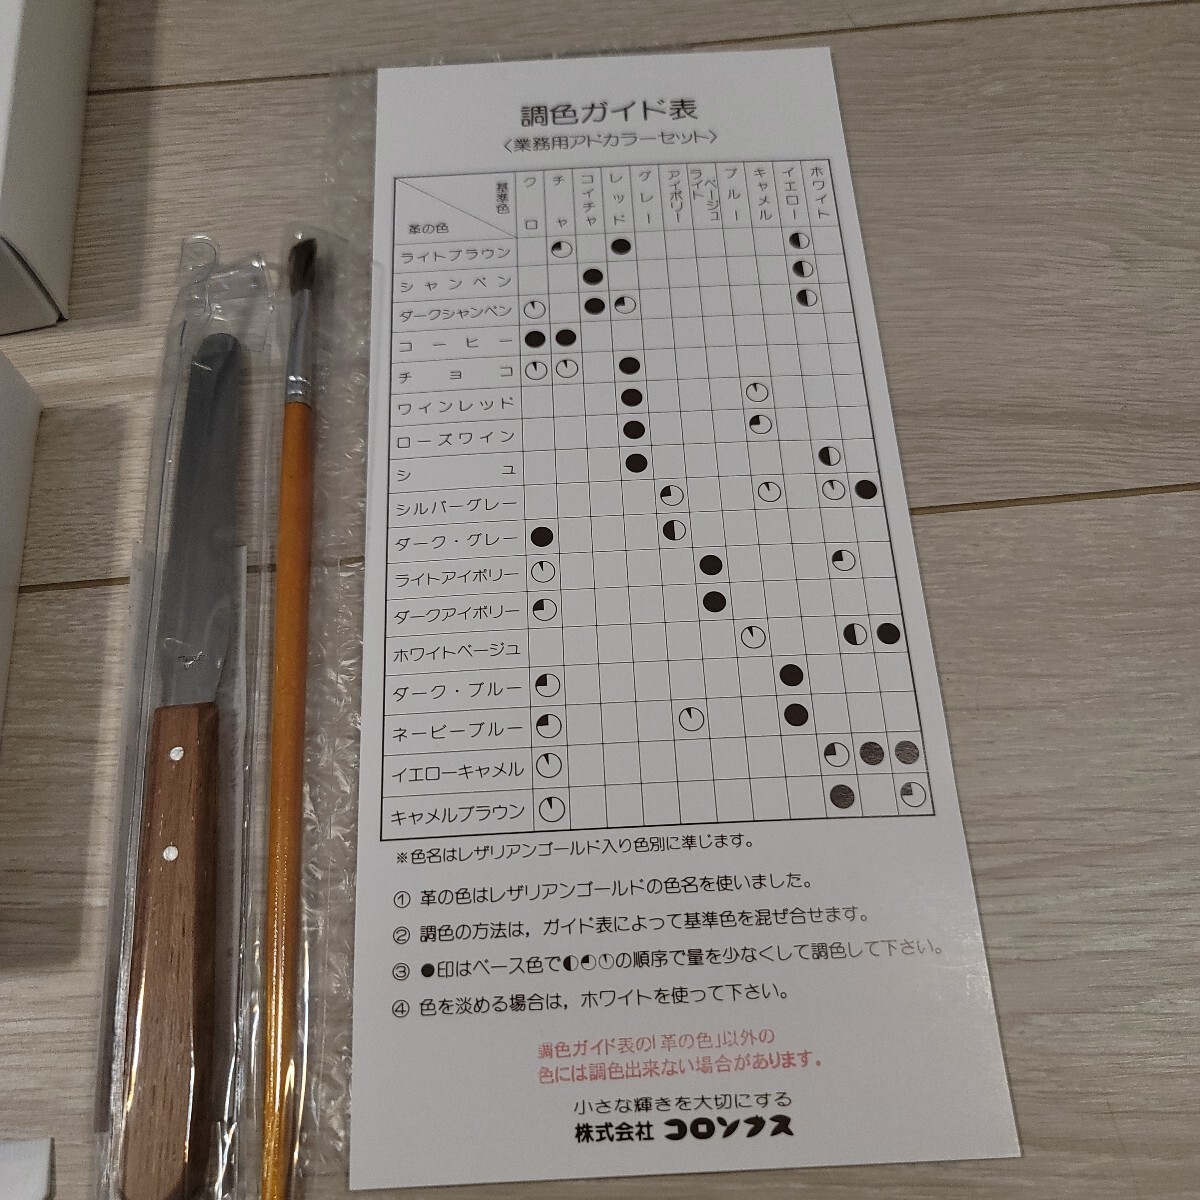 調色ガイド表
〈業務用アドカラーセット〉
基準色
革の色
クロ
チャ
コイチャ
レッド
グレー
アイボリー
ライトベージュ
ブルー
キャメル
イエロー
ホワイト
ライトブラウン
シャンペン
ダークシャンペン
コーヒー
チョコ
ワインレッド
ローズワイン
シュ
シルバーグレー
ダーク・グレー
ライトアイボリー
ダークアイボリー
ホワイトベージュ
ダーク・ブルー
ネービーブルー
イエローキャメル
キャメルブラウン
※色名はレザリアンゴールド入り色別に準じます。
① 革の色はレザリアンゴールドの色名を使いました。
② 調色の方法は，ガイド表によって基準色を混ぜ合せます。
③ ●印はベース色で◐◔◷の順序で量を少なくして調色して下さい。
④ 色を淡める場合は，ホワイトを使って下さい。
調色ガイド表の「革の色」以外の
色には調色出来ない場合があります。
小さな輝きを大切にする
株式会社 コロンブス